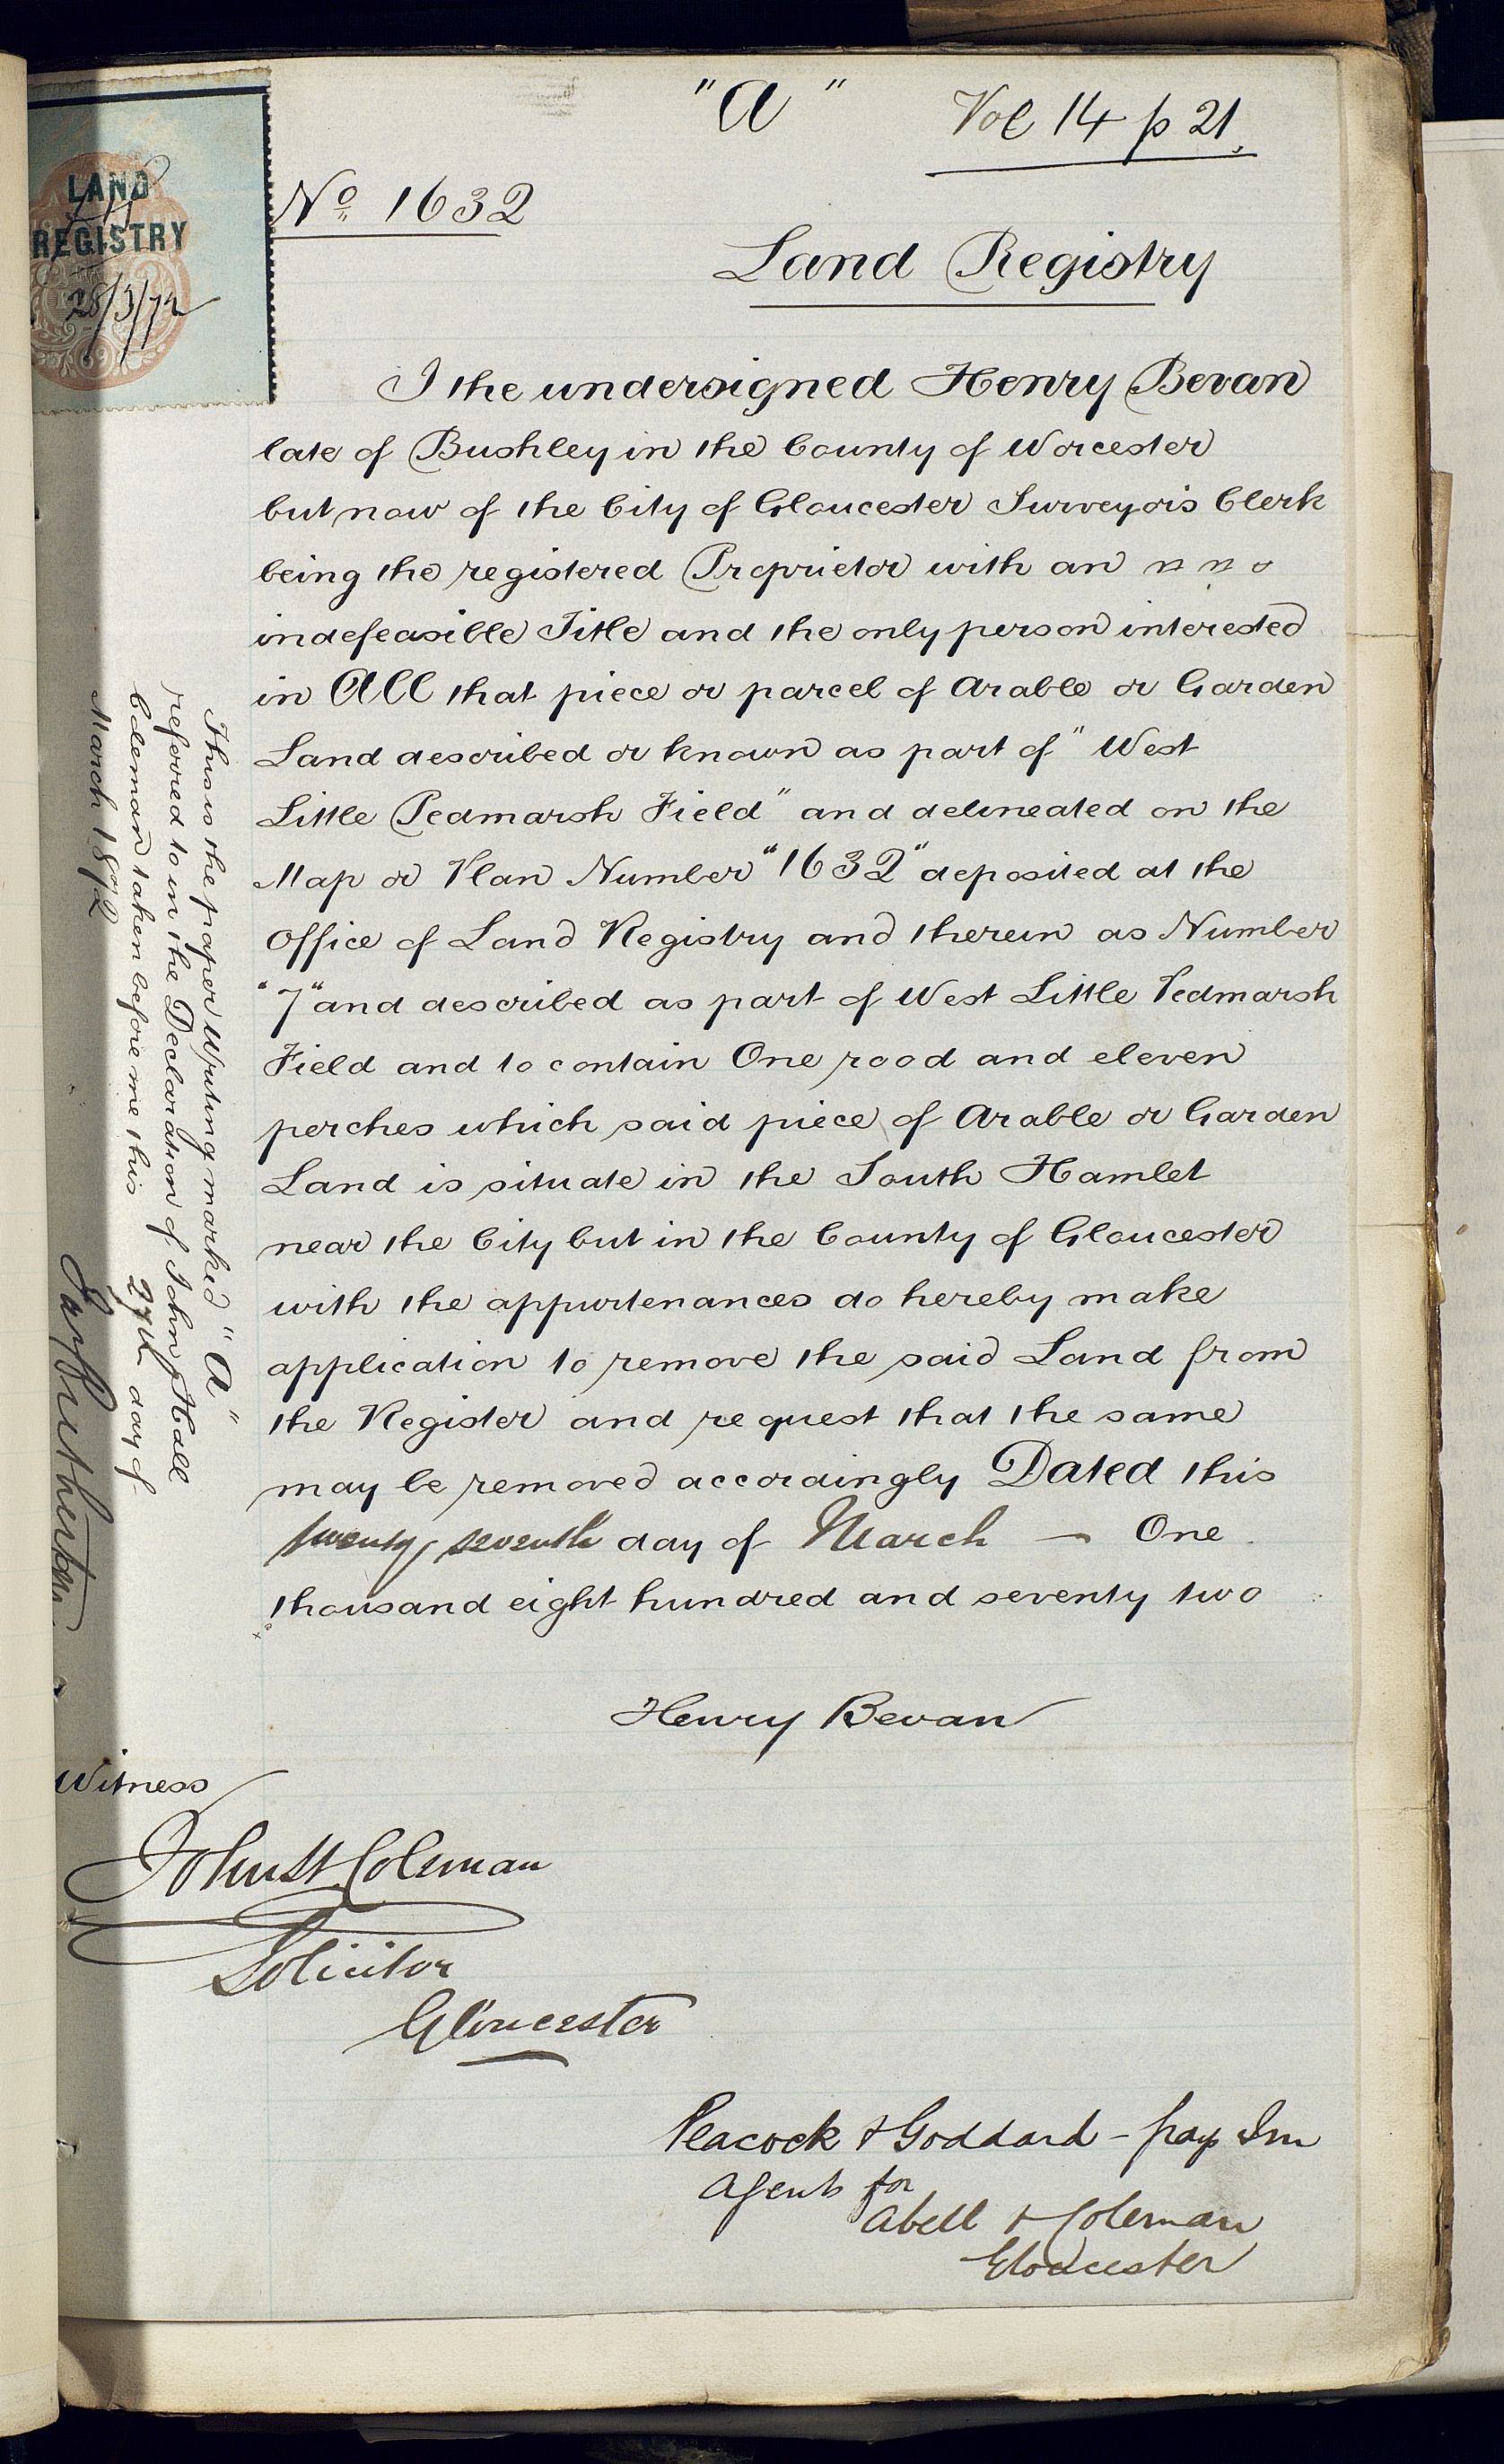 "A"
Vol 14 p 21.
LAND
REGISTRY
28/3/72
No 1632
Land Registry
I the undersigned Henry Bevan
late of Bushley in the County of Worcester
but now of the City of Gloucester Surveyor's Clerk
being the registered Proprietor with an
indefeasible Title and the only person interested
in All that piece or parcel of Arable or Garden
Land described or known as part of "West
Little Pedmarsh Field" and delineated on the
Map or Plan Number "1632" deposited at the
Office of Land Registry and therein as Number
"7" and described as part of West Little Pedmarsh
Field and to contain One rood and eleven
perches which said piece of Arable or Garden
Land is situate in the South Hamlet
near the City but in the County of Gloucester
with the appurtenances do hereby make
application to remove the said Land from
the Register and request that the same
may be removed accordingly Dated this
twenty seventh day of March — One
thousand eight hundred and seventy two
Henry Bevan
Witness
John H. Coleman
Solicitor
Gloucester
Peacock & Goddard - Grays Inn
Agents for
Abell & Coleman
Gloucester
This is the paper writing marked "A"
referred to in the Declaration of John Hall
Coleman taken before me this 27th day of
March 1872